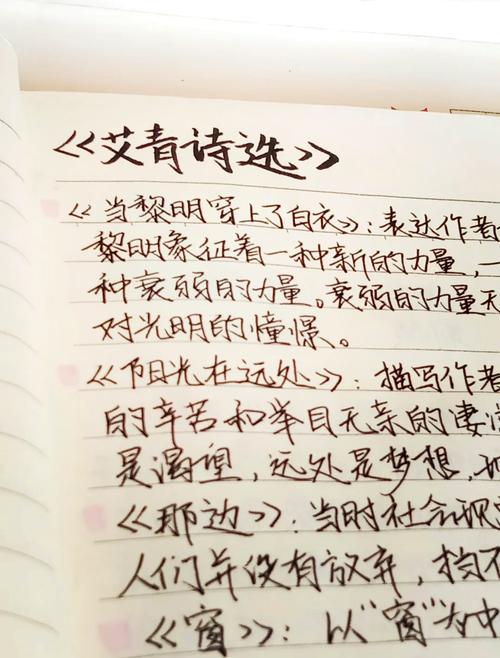 《艾青诗选》
《当黎明穿上了白衣》：表达作者
黎明象征着一种新的力量，一
种衰弱的力量。衰弱的力量无
对光明的憧憬。
《阳光在远处》：描写作者
的辛苦和举目无亲的凄
是渴望，远处是梦想，
《那边》：当时社会现
人们并没有放弃，
《窗》：以“窗”为中